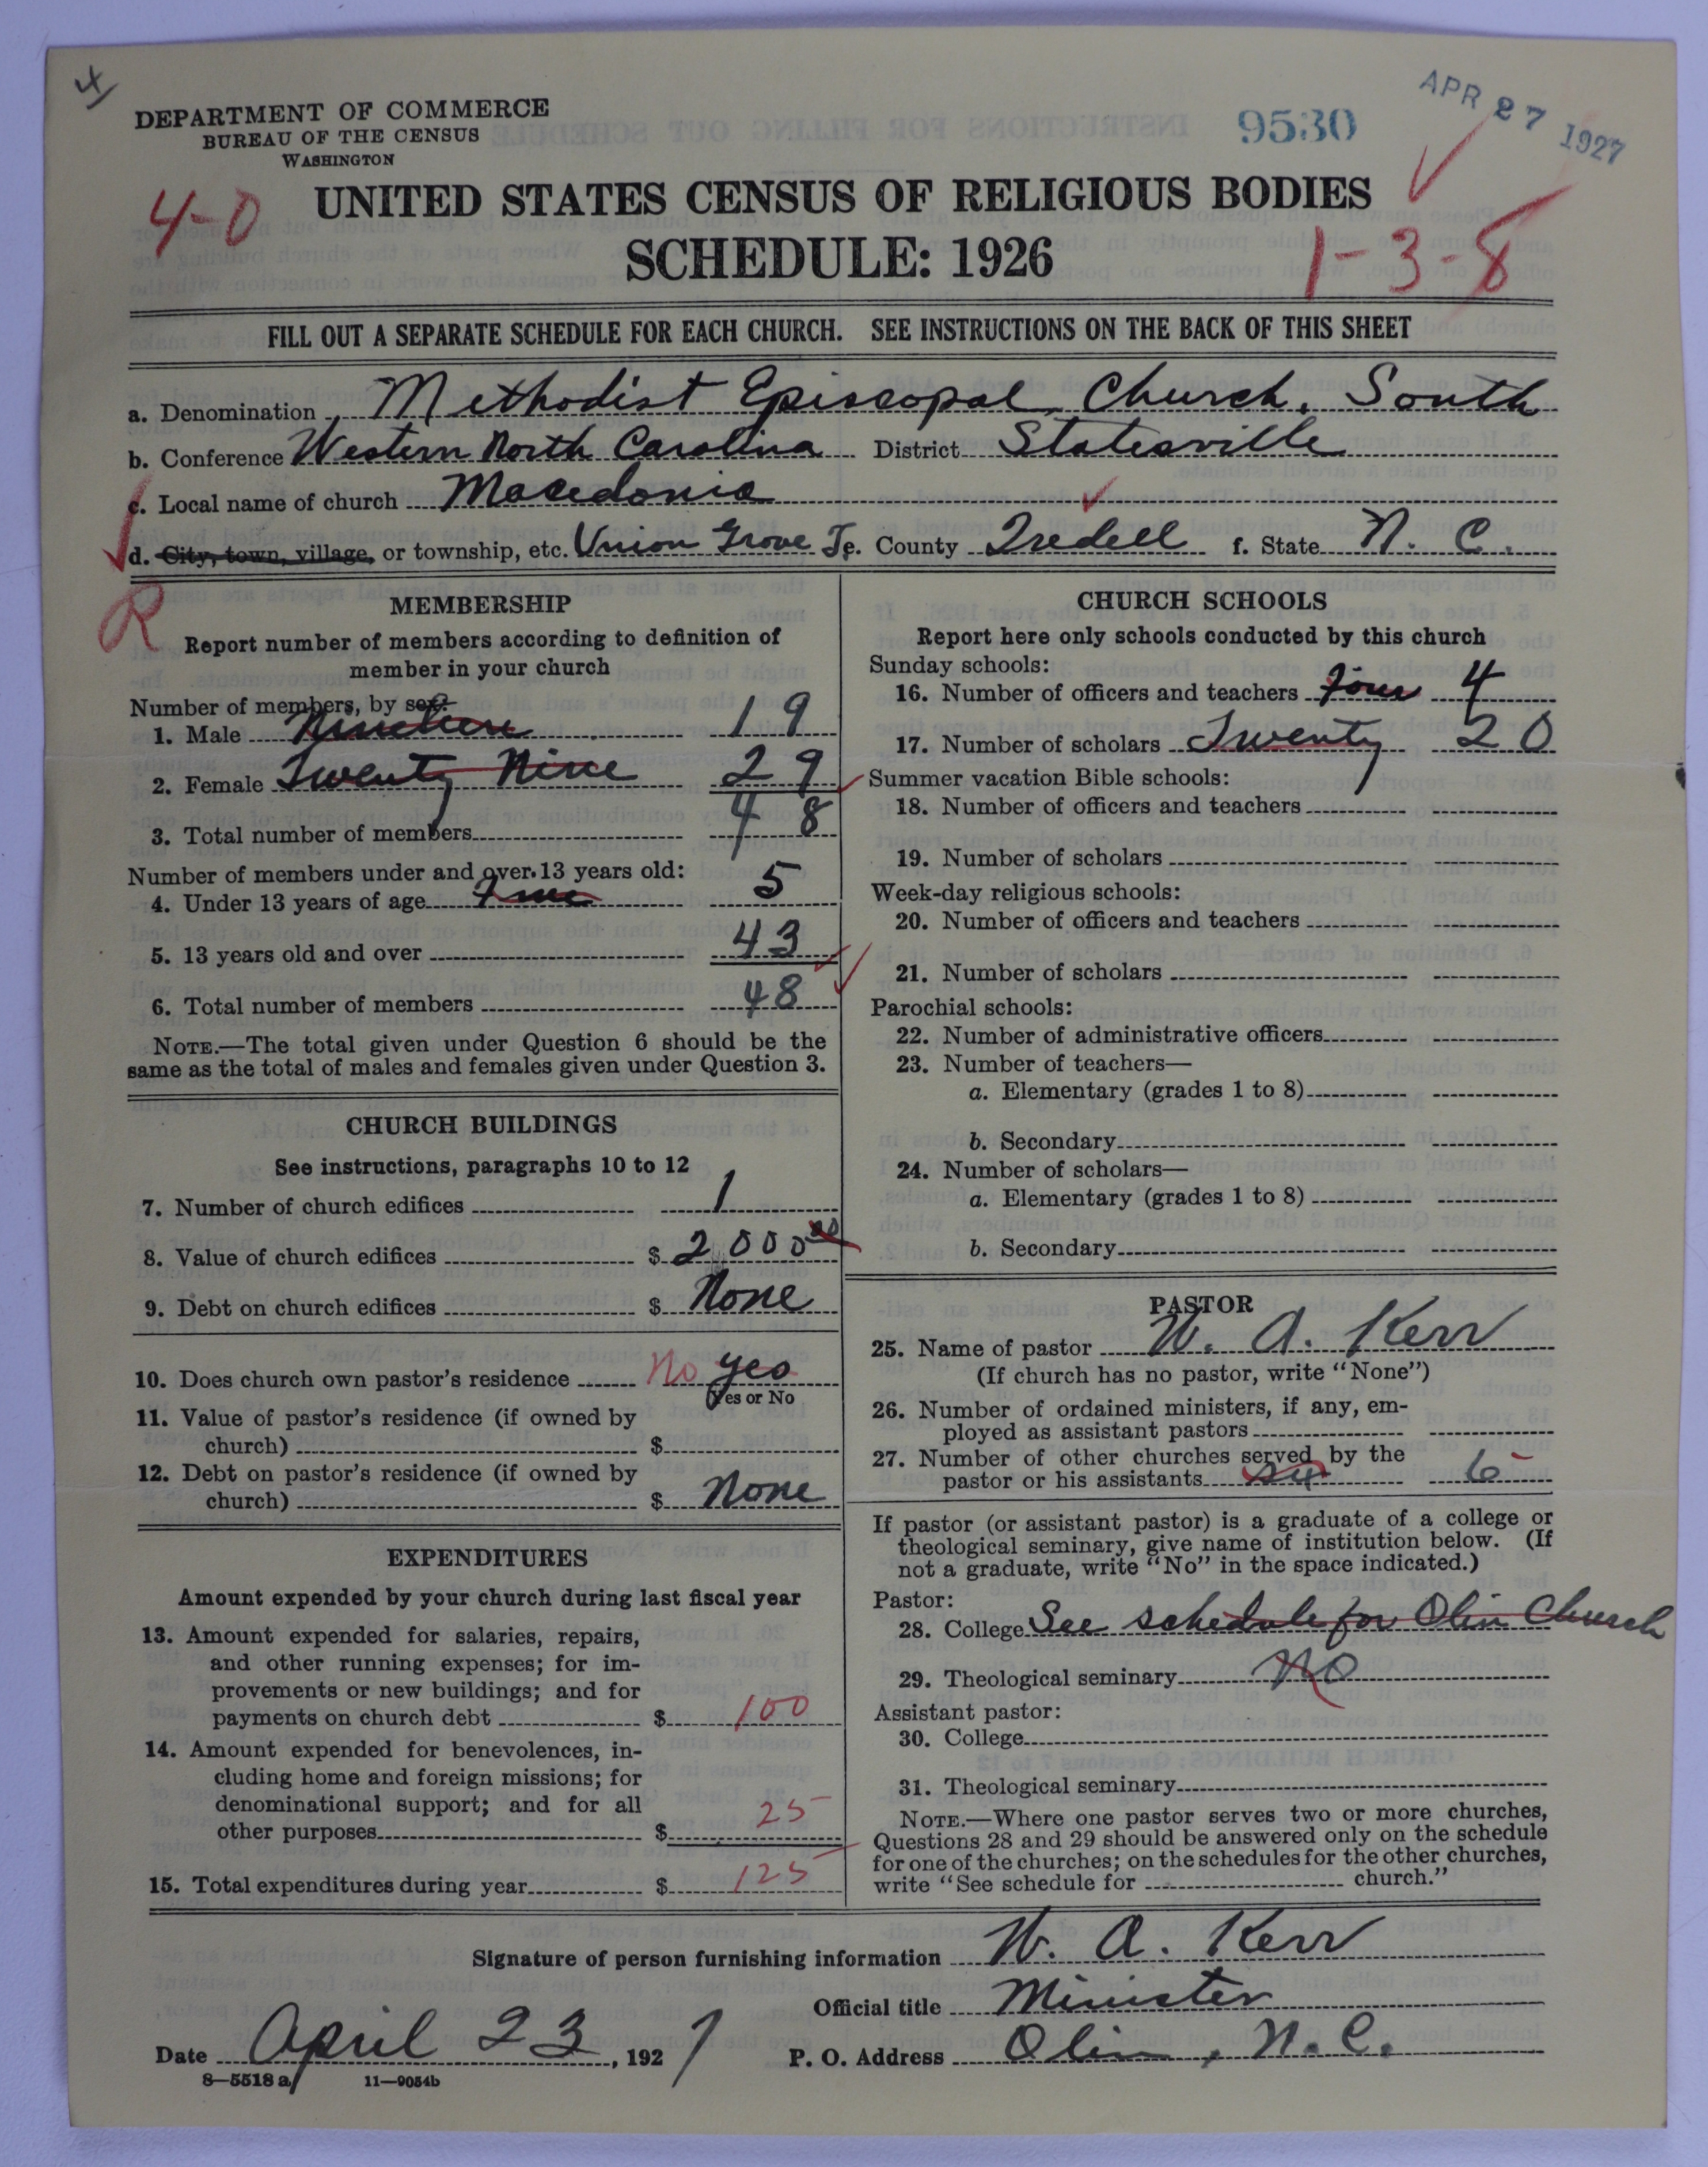 4
DEPARTMENT OF COMMERCE
BUREAU OF THE CENSUS
WASHINGTON
9530
APR 27 1927
4-0
UNITED STATES CENSUS OF RELIGIOUS BODIES
SCHEDULE: 1926
1-3-8
FILL OUT A SEPARATE SCHEDULE FOR EACH CHURCH. SEE INSTRUCTIONS ON THE BACK OF THIS SHEET
a. Denomination Methodist Episcopal Church, South
b. Conference Western North Carolina District Statesville
c. Local name of church Macedonia
d. City, town, village, or township, etc. Union Grove Tp. e. County Iredell f. State N. C.
R
MEMBERSHIP
Report number of members according to definition of
member in your church
Number of members, by sex:
1. Male Nineteen 19
2. Female Twenty Nine 29
3. Total number of members 48
Number of members under and over 13 years old:
4. Under 13 years of age Five 5
5. 13 years old and over 43
6. Total number of members 48
NOTE.—The total given under Question 6 should be the
same as the total of males and females given under Question 3.
CHURCH BUILDINGS
See instructions, paragraphs 10 to 12
7. Number of church edifices 1
8. Value of church edifices $ 2000 00
9. Debt on church edifices $ None
10. Does church own pastor's residence No yes
(Yes or No
11. Value of pastor's residence (if owned by
church) $
12. Debt on pastor's residence (if owned by
church) $ None
EXPENDITURES
Amount expended by your church during last fiscal year
13. Amount expended for salaries, repairs,
and other running expenses; for im-
provements or new buildings; and for
payments on church debt $ 100
14. Amount expended for benevolences, in-
cluding home and foreign missions; for
denominational support; and for all
other purposes $ 25
15. Total expenditures during year $ 125
CHURCH SCHOOLS
Report here only schools conducted by this church
Sunday schools:
16. Number of officers and teachers Four 4
17. Number of scholars Twenty 20
Summer vacation Bible schools:
18. Number of officers and teachers
19. Number of scholars
Week-day religious schools:
20. Number of officers and teachers
21. Number of scholars
Parochial schools:
22. Number of administrative officers
23. Number of teachers—
a. Elementary (grades 1 to 8)
b. Secondary
24. Number of scholars—
a. Elementary (grades 1 to 8)
b. Secondary
PASTOR
25. Name of pastor W. A. Kerr
(If church has no pastor, write "None")
26. Number of ordained ministers, if any, em-
ployed as assistant pastors
27. Number of other churches served by the
pastor or his assistants six 6
If pastor (or assistant pastor) is a graduate of a college or
theological seminary, give name of institution below. (If
not a graduate, write "No" in the space indicated.)
Pastor:
28. College See schedule for Olin Church
29. Theological seminary No
Assistant pastor:
30. College
31. Theological seminary
NOTE.—Where one pastor serves two or more churches,
Questions 28 and 29 should be answered only on the schedule
for one of the churches; on the schedules for the other churches,
write "See schedule for church."
Signature of person furnishing information W. A. Kerr
Official title Minister
Date April 23, 1927 P. O. Address Olin, N. C.
8—5518 a 11—9054b